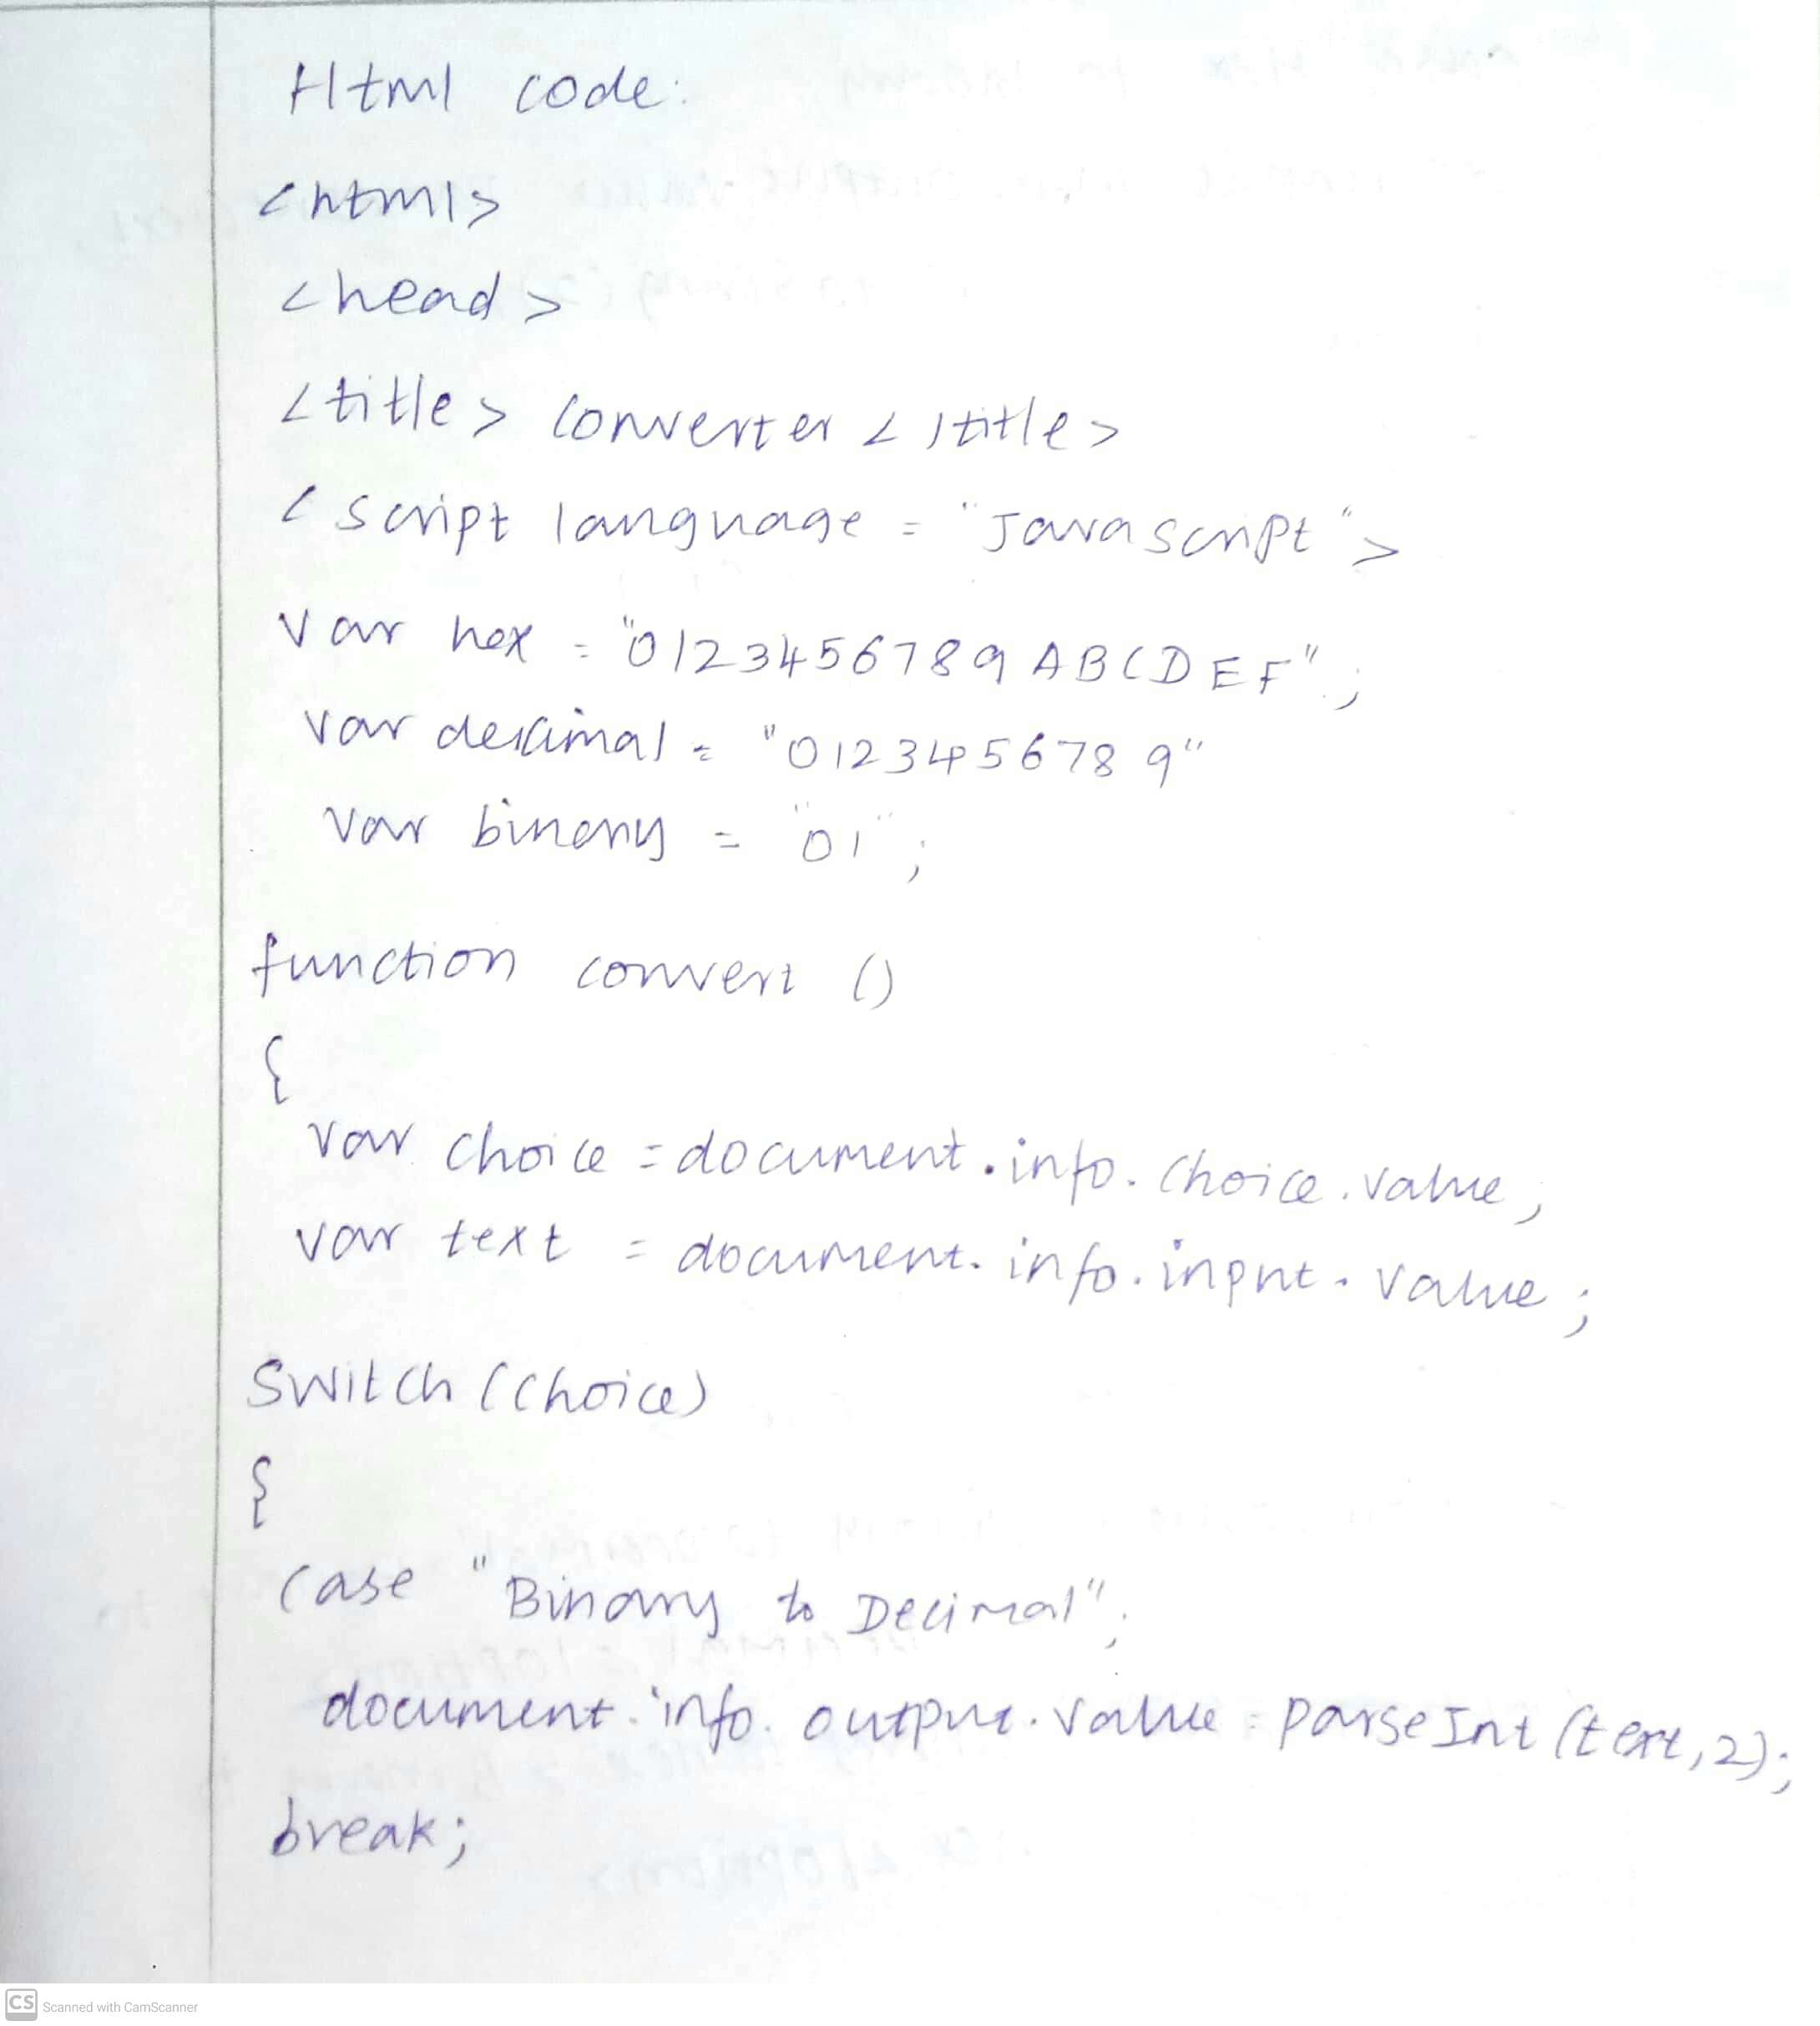 Html code:
<html>
<head>
<title> Converter </title>
<script language = "Javascript">
Var hex = "0123456789 ABCDEF";
Var decimal = "0123456789"
Var binary = "01";
function convert ()
{
Var choice = document.info.choice.value;
Var text = document.info.input.value;
Switch (choice)
{
Case "Binary to Decimal";
document.info.output.value = parseInt (text,2);
break;
CS Scanned with CamScanner